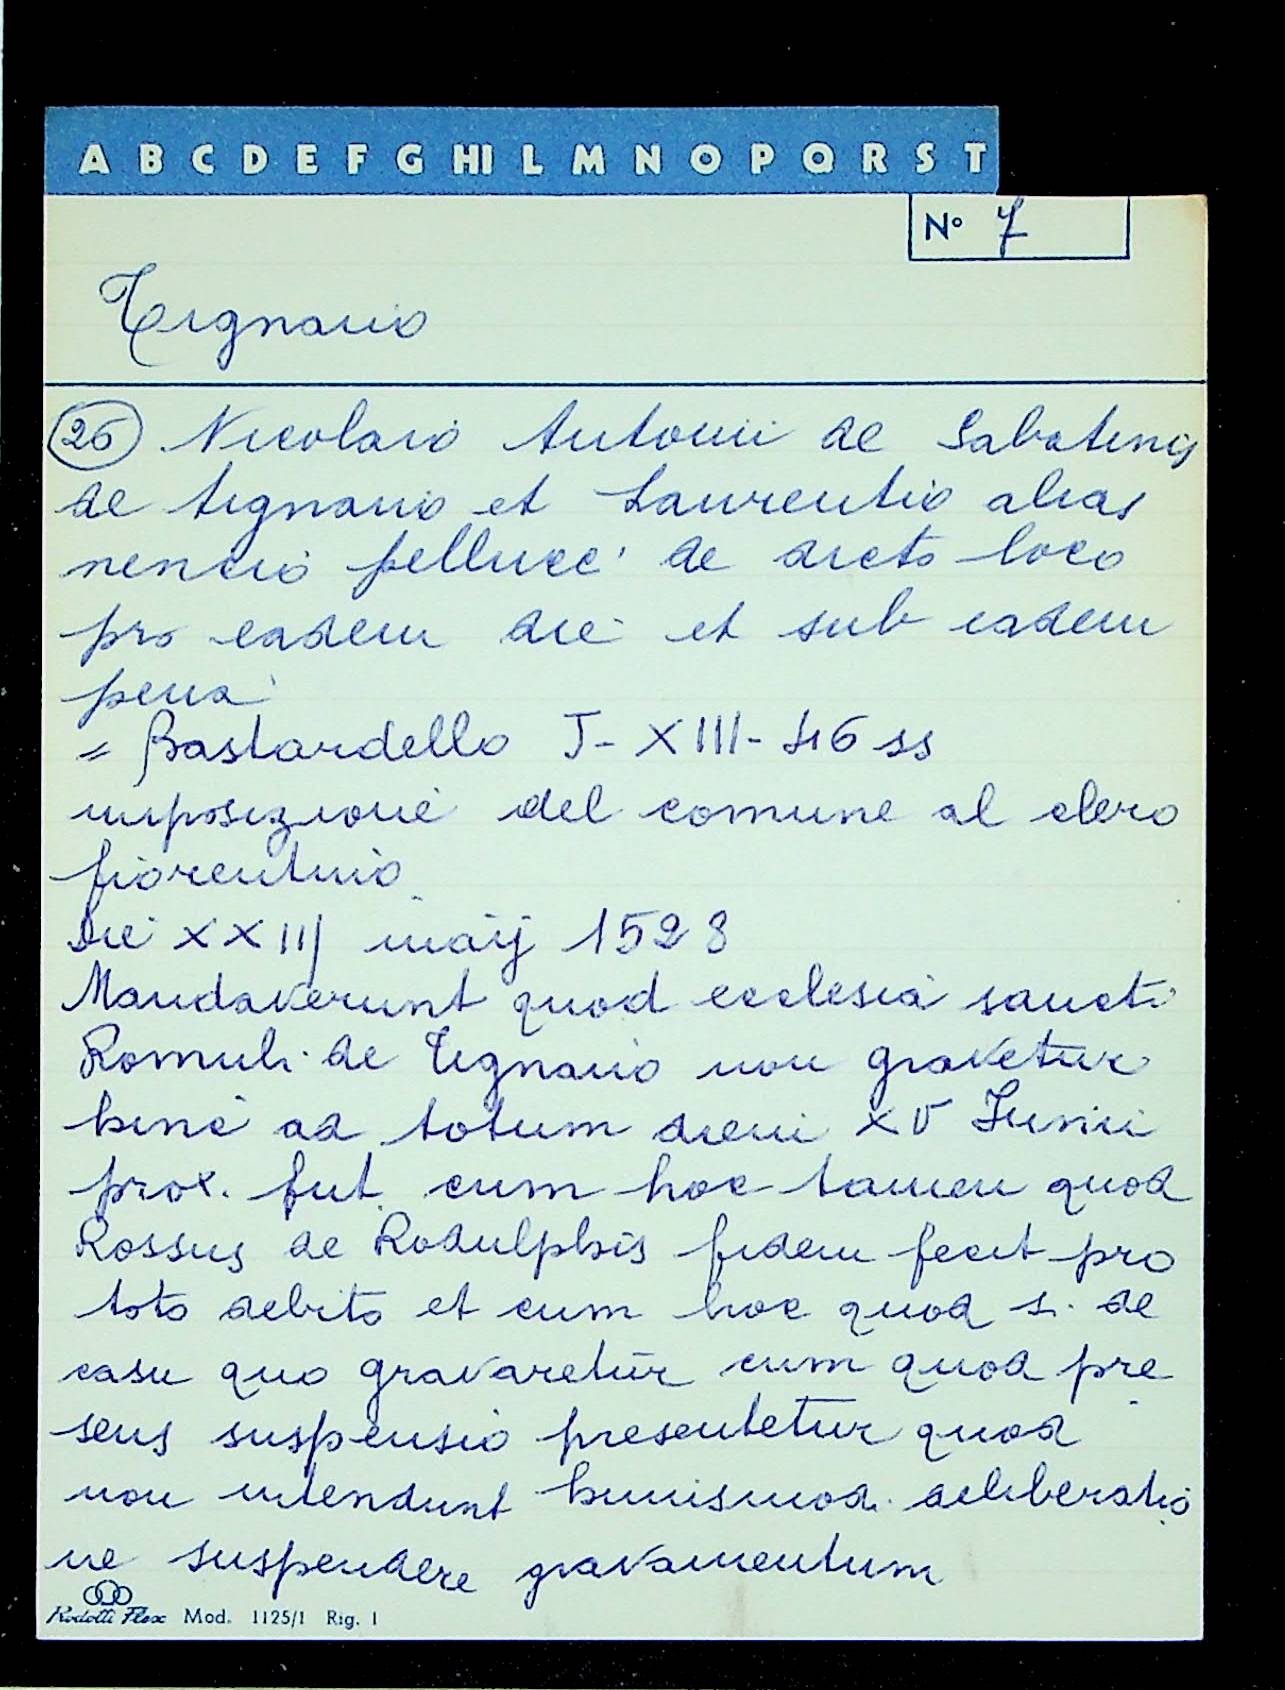 A B C D E F G HI L M N O P Q R S T
Nº 7
Tignano
26 Nicolaio Antonii de Sabatinis
de tignano et Laurentio alias
nencio pellucci de dicto loco
pro eadem die et sub eadem
pena
= Bastardello J- XIII- 46 ss
imposizione del comune al clero
fiorentino
Die XXIIJ maij 1528
Mandaverunt quod ecclesia sancti
Romuli de Tignano non gravetur
hinc ad totum diem XV Junii
prox. fut. cum hoc tamen quod
Rossus de Rodulphis fidem fecit pro
toto debito et cum hoc quod s. de
casu quo gravaretur cum quod pre
sens suspensio presentetur quod
non intendunt huiusmodi deliberatio
ne suspendere gravamentum
Rodolti Flex Mod. 1125/1 Rig. 1